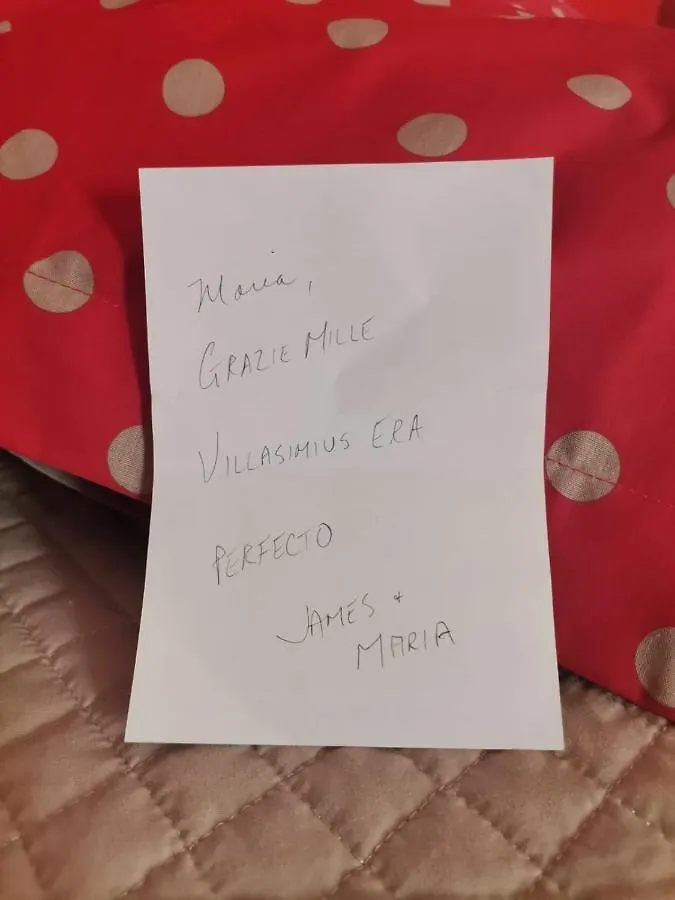 Maria,
GRAZIE MILLE
VILLASIMIUS ERA
PERFECTO
JAMES +
MARIA